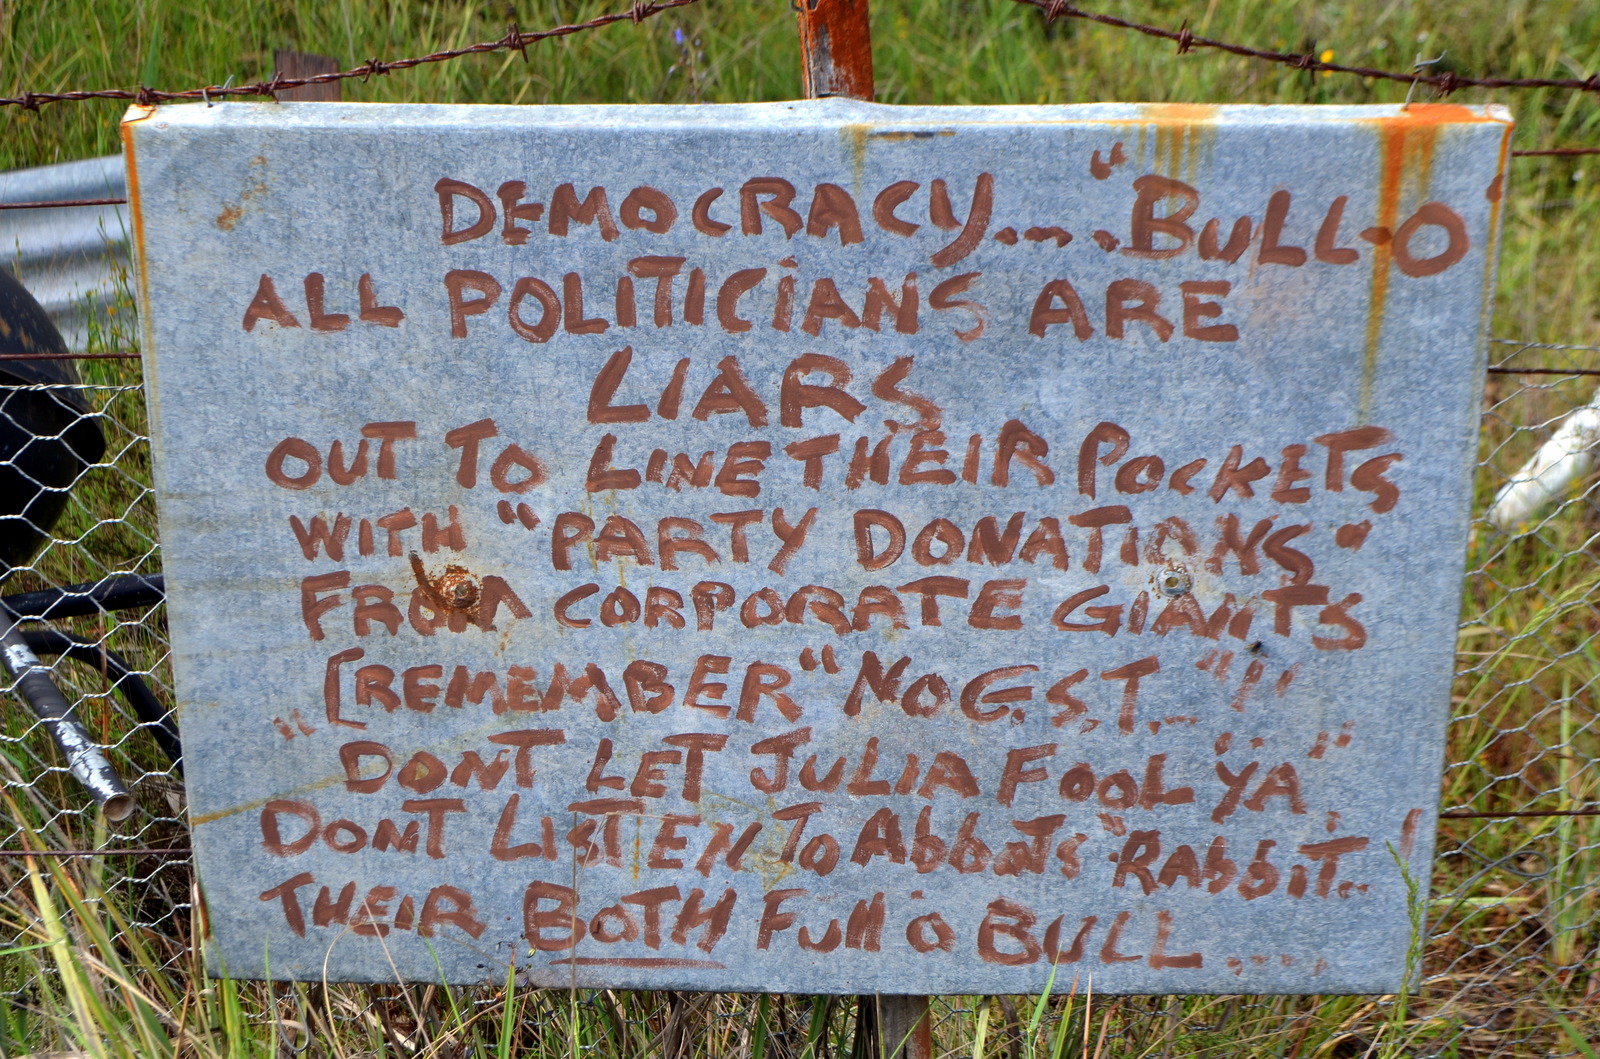 DEMOCRACY.... "BULL-O"
ALL POLITICIANS ARE
LIARS
OUT TO LINE THEIR POCKETS
WITH "PARTY DONATIONS"
FROM CORPORATE GIANTS
[REMEMBER "NO G.S.T..."!"
"DONT LET JULIA FOOL YA"
DONT LISTEN TO AbbOTS "RAbbiT..!
THEIR BOTH Full o BULL.....